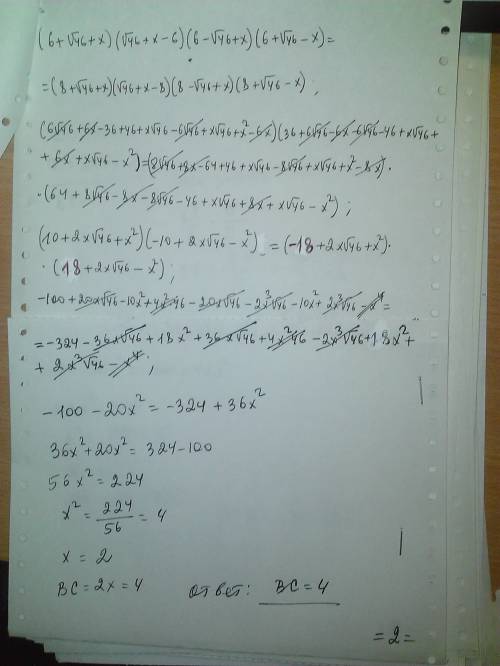 (6+√46+x)(√46+x-6)(6-√46+x)(6+√46-x)=
=(8+√46+x)(√46+x-8)(8-√46+x)(8+√46-x);
(6√46+6x-36+46+x√46-6√46+x√46+x²-6x)(36+6√46-6x-6√46-46+x√46+
+6x+x√46-x²)=(8√46+8x-64+46+x√46-8√46+x√46+x²-8x)·
·(64+8√46-8x-8√46-46+x√46+8x+x√46-x²);
(10+2x√46+x²)(-10+2x√46-x²)=(-18+2x√46+x²)·
·(18+2x√46-x²);
-100+20x√46-10x²+4x²46-20x√46-2x³√46-10x²+2x³√46-x⁴=
=-324-36x√46+18x²+36x√46+4x²46-2x³√46+18x²+
+2x³√46-x⁴;
-100-20x²=-324+36x²
36x²+20x²=324-100
56x²=224
x²=224/56=4
x=2
BC=2x=4 ответ: BC=4
=2=